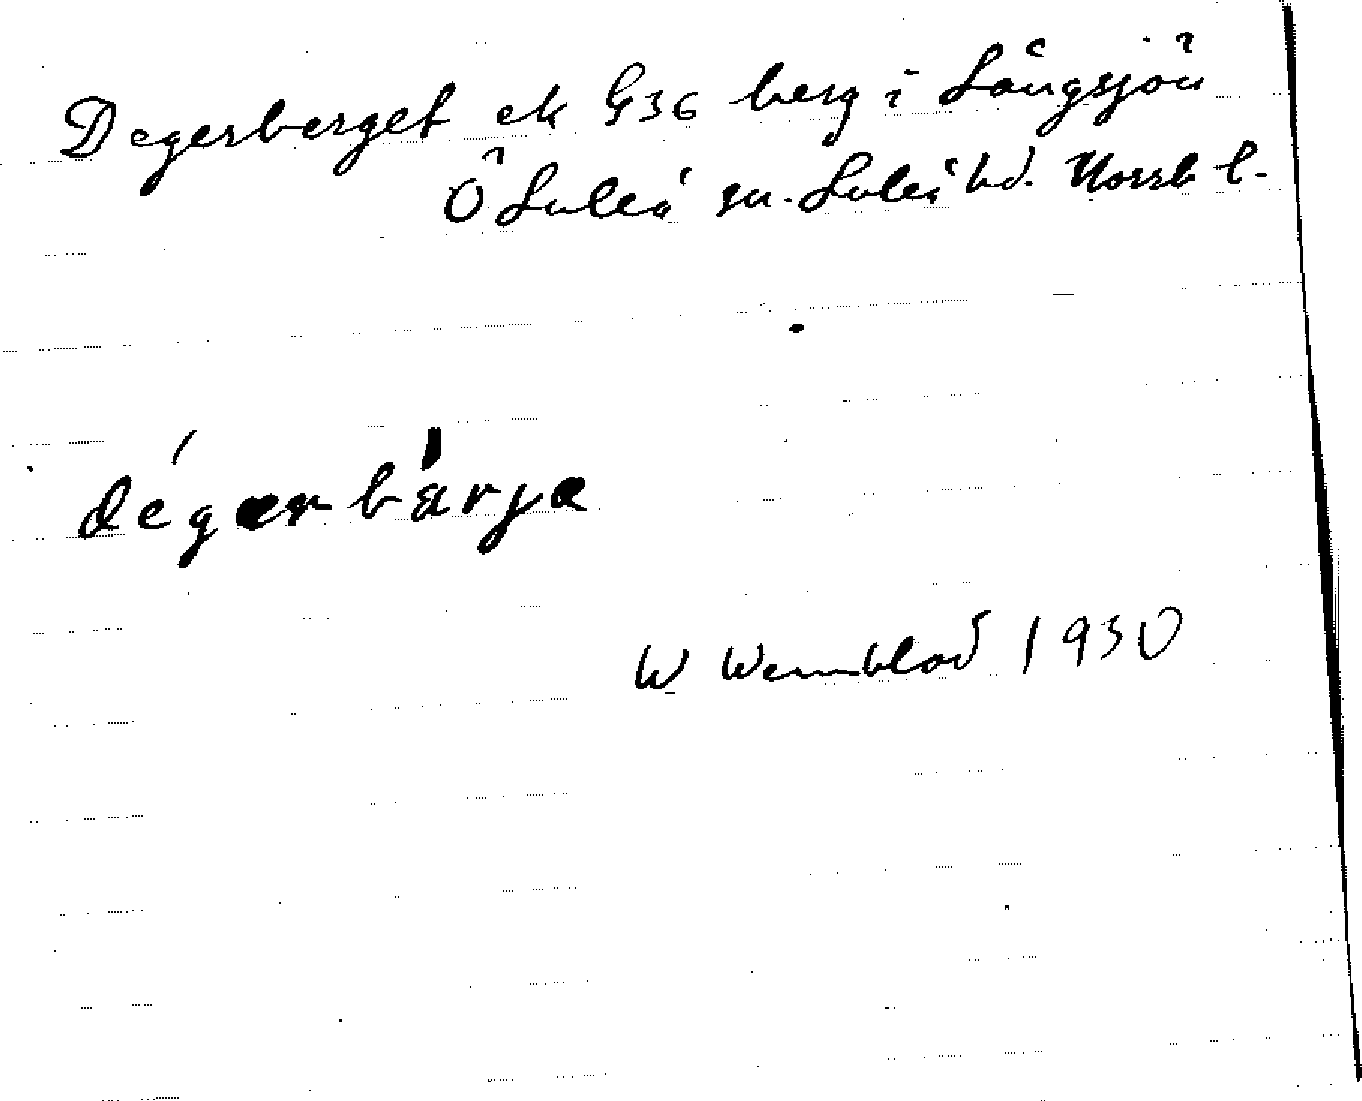 Degerberget ek G36 berg i Långsjön
Ö Luleå sn. Luleå hd. Norrb l.
dégerbärje
W Wennblad 1930